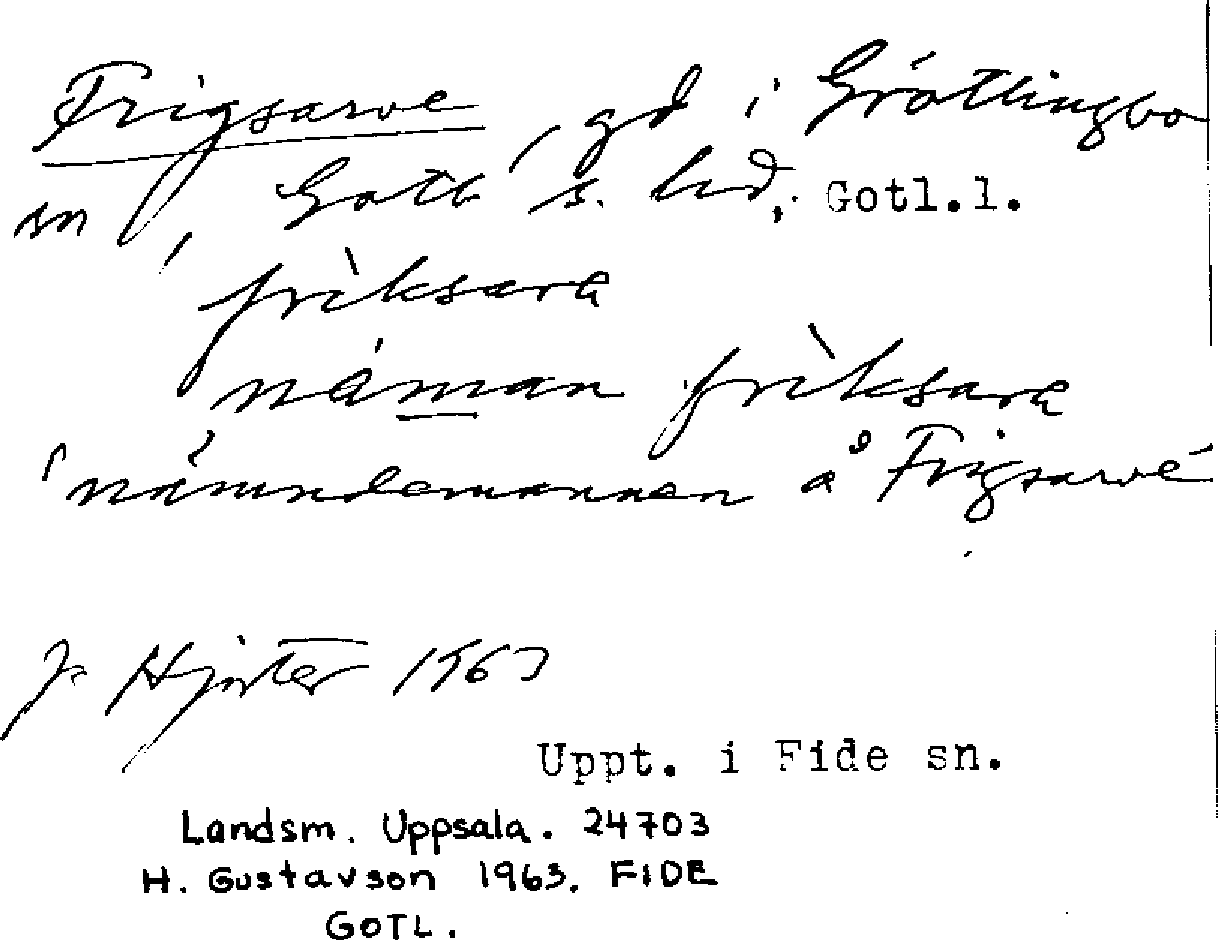 Frigsarve, gd i Grötlingbo
sn, Gotl s. hd, Gotl.l.
frìksara
náman frìksara
'nämndemannen å Frigsarve'
J. Hjorter 1963
Uppt. i Fide sn.
Landsm. Uppsala. 24703
H. Gustavson 1963. FIDE
GOTL.